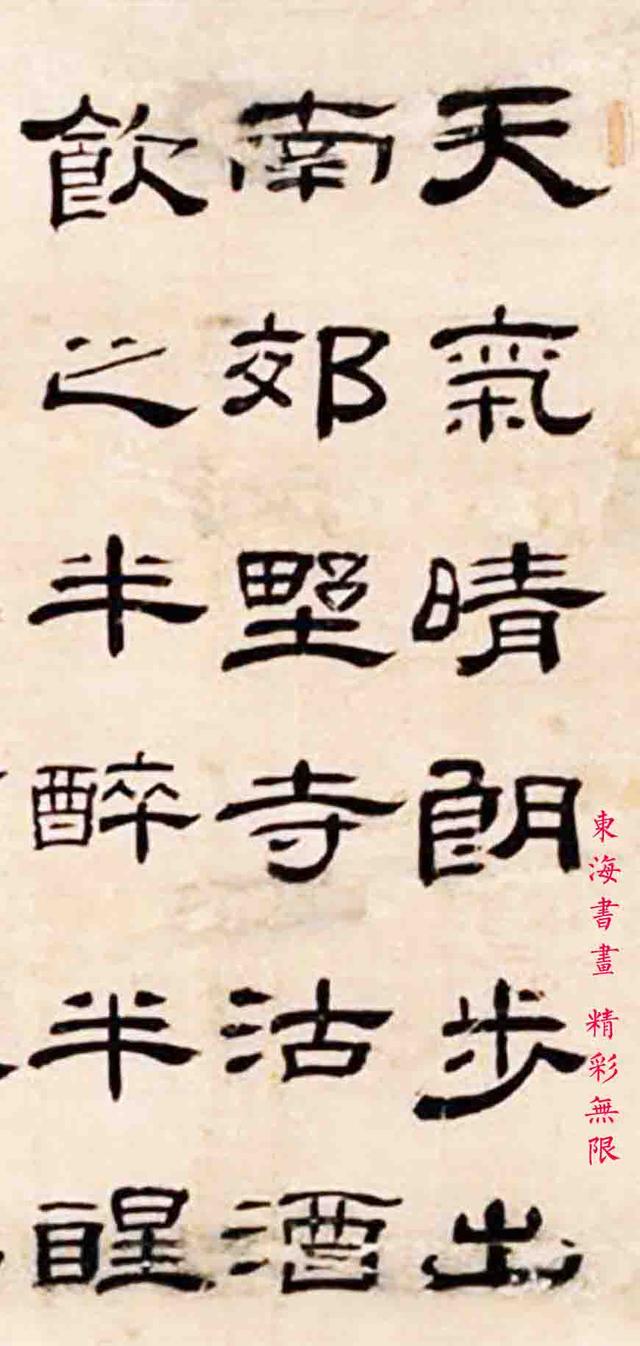 天氣晴朗步出
南郊野寺沽酒
飲之半醉半醒
東海書畫 精彩無限